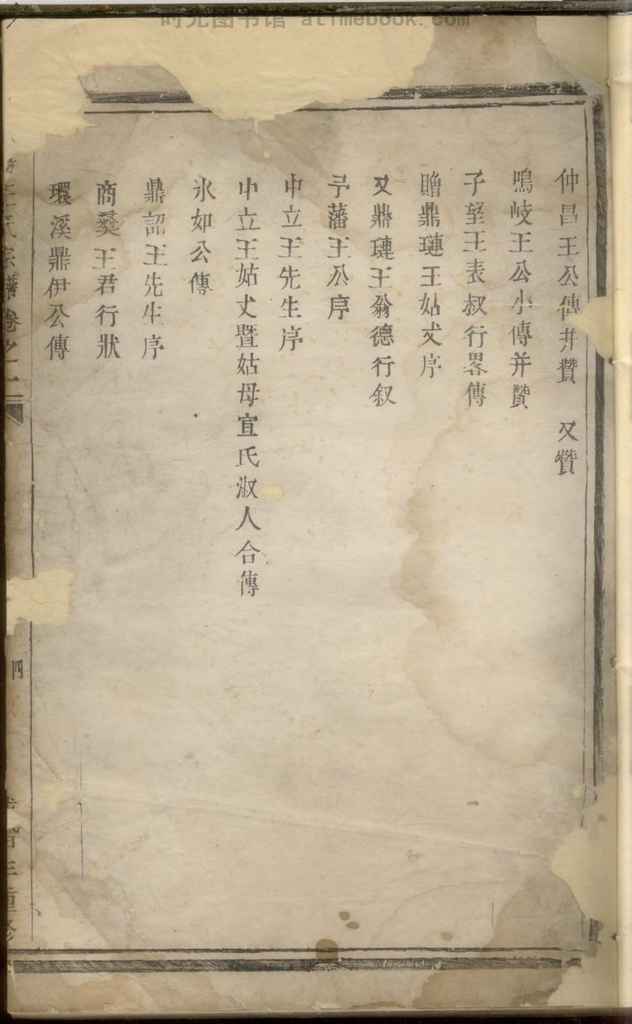 时光图书馆 atimebook.com
仲昌王公傳并贊 又贊
鳴岐王公小傳并贊
子望王表叔行畧傳
贈鼎璉王姑丈序
又鼎璉王翁德行叙
于藩王公序
中立王先生序
中立王姑丈暨姑母宣氏淑人合傳
氷如公傳
鼎詔王先生序
商燮王君行狀
環溪鼎伊公傳
王氏宗譜卷之一
四
重修